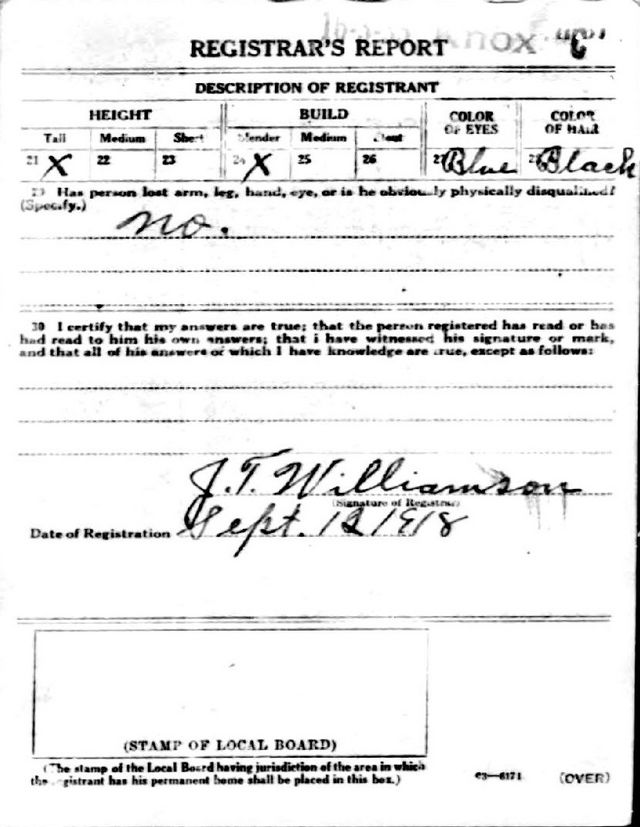 Knox "C"
REGISTRAR'S REPORT
DESCRIPTION OF REGISTRANT
HEIGHT BUILD COLOR OF EYES COLOR OF HAIR
Tall Medium Short Slender Medium Stout
21 X 22 23 24 X 25 26 27 Blue 28 Black
29 Has person lost arm, leg, hand, eye, or is he obviously physically disqualified?
(Specify.)
no.
30 I certify that my answers are true; that the person registered has read or has
had read to him his own answers; that i have witnessed his signature or mark,
and that all of his answers of which I have knowledge are true, except as follows:
J.T. Williamson
(Signature of Registrar)
Date of Registration Sept. 12 1918
(STAMP OF LOCAL BOARD)
(The stamp of the Local Board having jurisdiction of the area in which
the registrant has his permanent home shall be placed in this box.)
03—6171 (OVER)